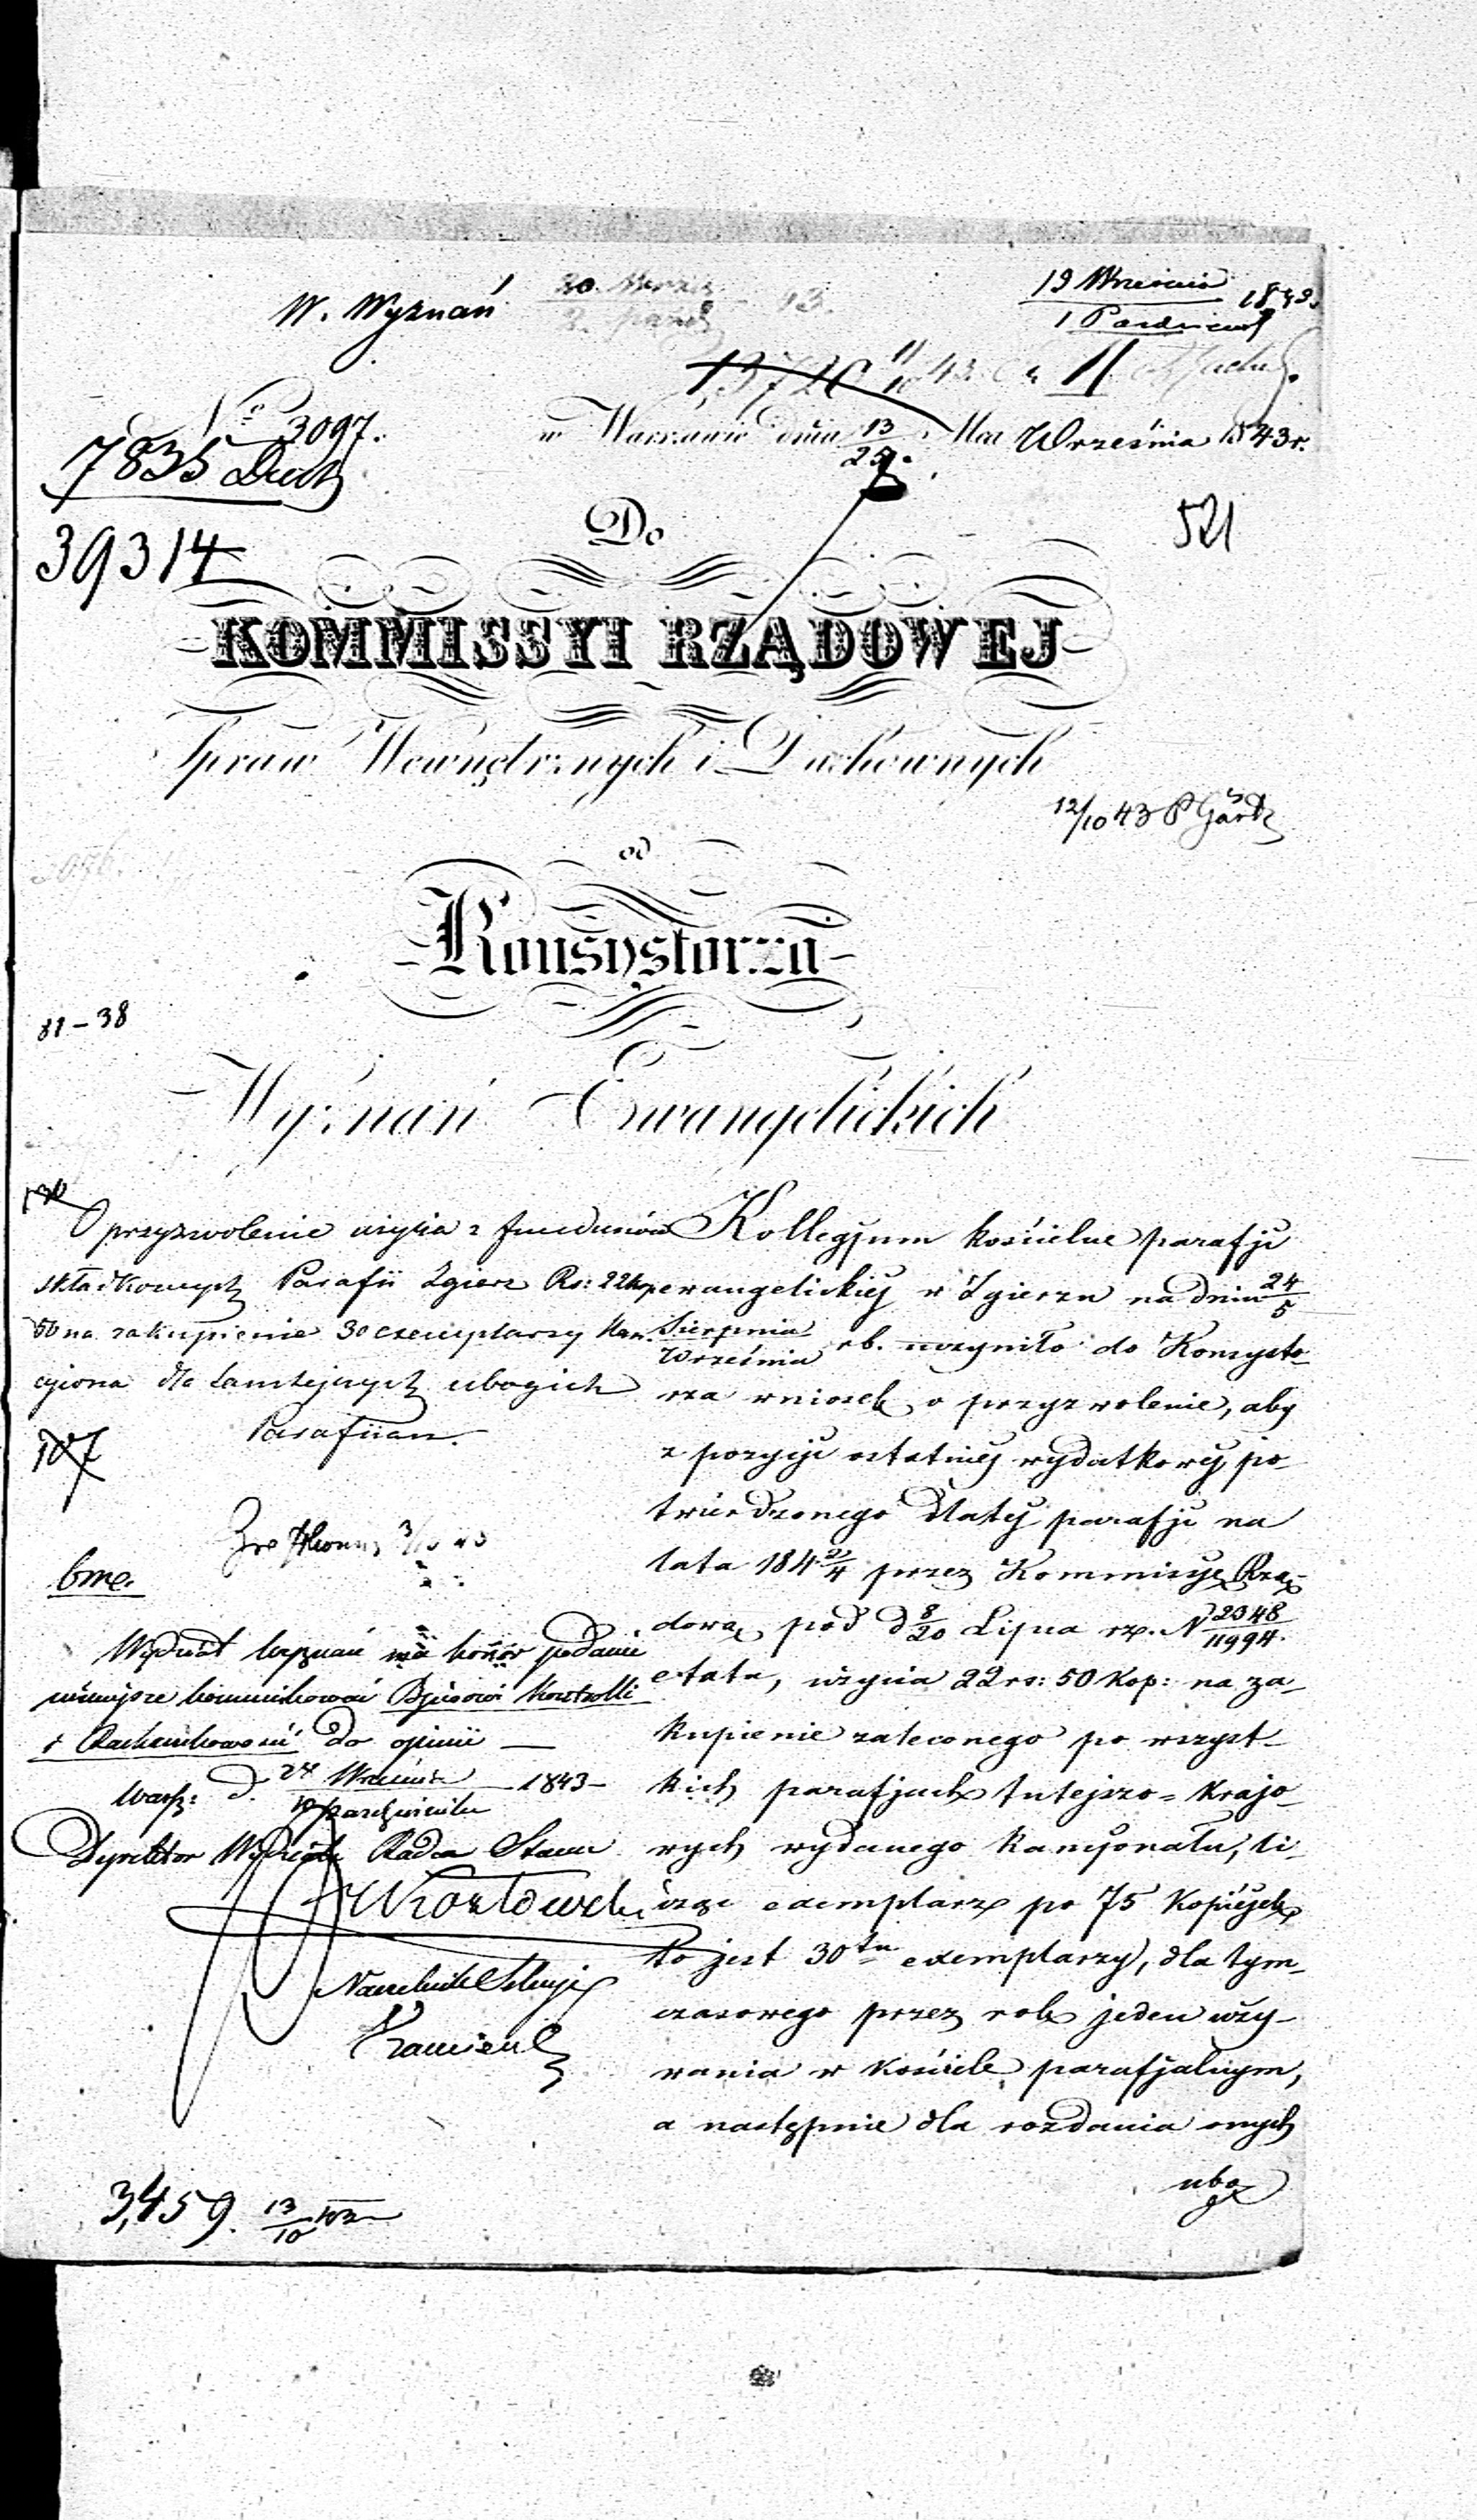 W. Wyznań
19 Września
1 Październ 1843
No 3097.
w Warszawie dnia 13/25 Mca Września 1843 r.
7835
39314
521
Do
KOMMISSYI RZĄDOWEJ
Spraw Wewnętrznych i Duchownych
12/10 43
od
Konsystorza
81-38
Wyznań Ewangelickich
O przyzwolenie użycia z funduszów
składkowych Parafii Zgierz Rs: 22 kop
50 na zakupienie 30 exemplarzy Kan-
cyjona dla tamtejszych ubogich
Parafiian.
107
bme.
Wydział Wyznań ma honor podanie
niniejsze kommunikować Bjurowi Kontrolli
i Rachunkowości do opinii —
Warsz: d. 1843 —
Października
Dyrektor Wydziału Radca Stanu
Naczelnik Sekcyi
3,459. 13/10
Kollegjum kościelne parafji
ewangelickiej w Zgierzu na dniu 24/5
Sierpnia/Września rb. uczyniło do Konsysto-
rza wniosek o przyzwolenie, aby
z pozycji ostatniej wydatkowej po-
twierdzonego Etatu parafji na
lata 184 2/4 przez Kommissyę Rzą-
dową pod d 8/20 Lipca rz. N 2348/11994.
etatu, użycia 22 rs: 50 kop: na za-
kupienie zaleconego po wszyst-
kich parafjach tutejszo=krajo-
wych wydanego kancjonału, li-
cząc exemplarz po 75 kopiejek,
to jest 30tu exemplarzy, dla tym-
czasowego przez rok jeden uży-
wania w kościele parafjalnym,
a następnie dla rozdania onych
ubo